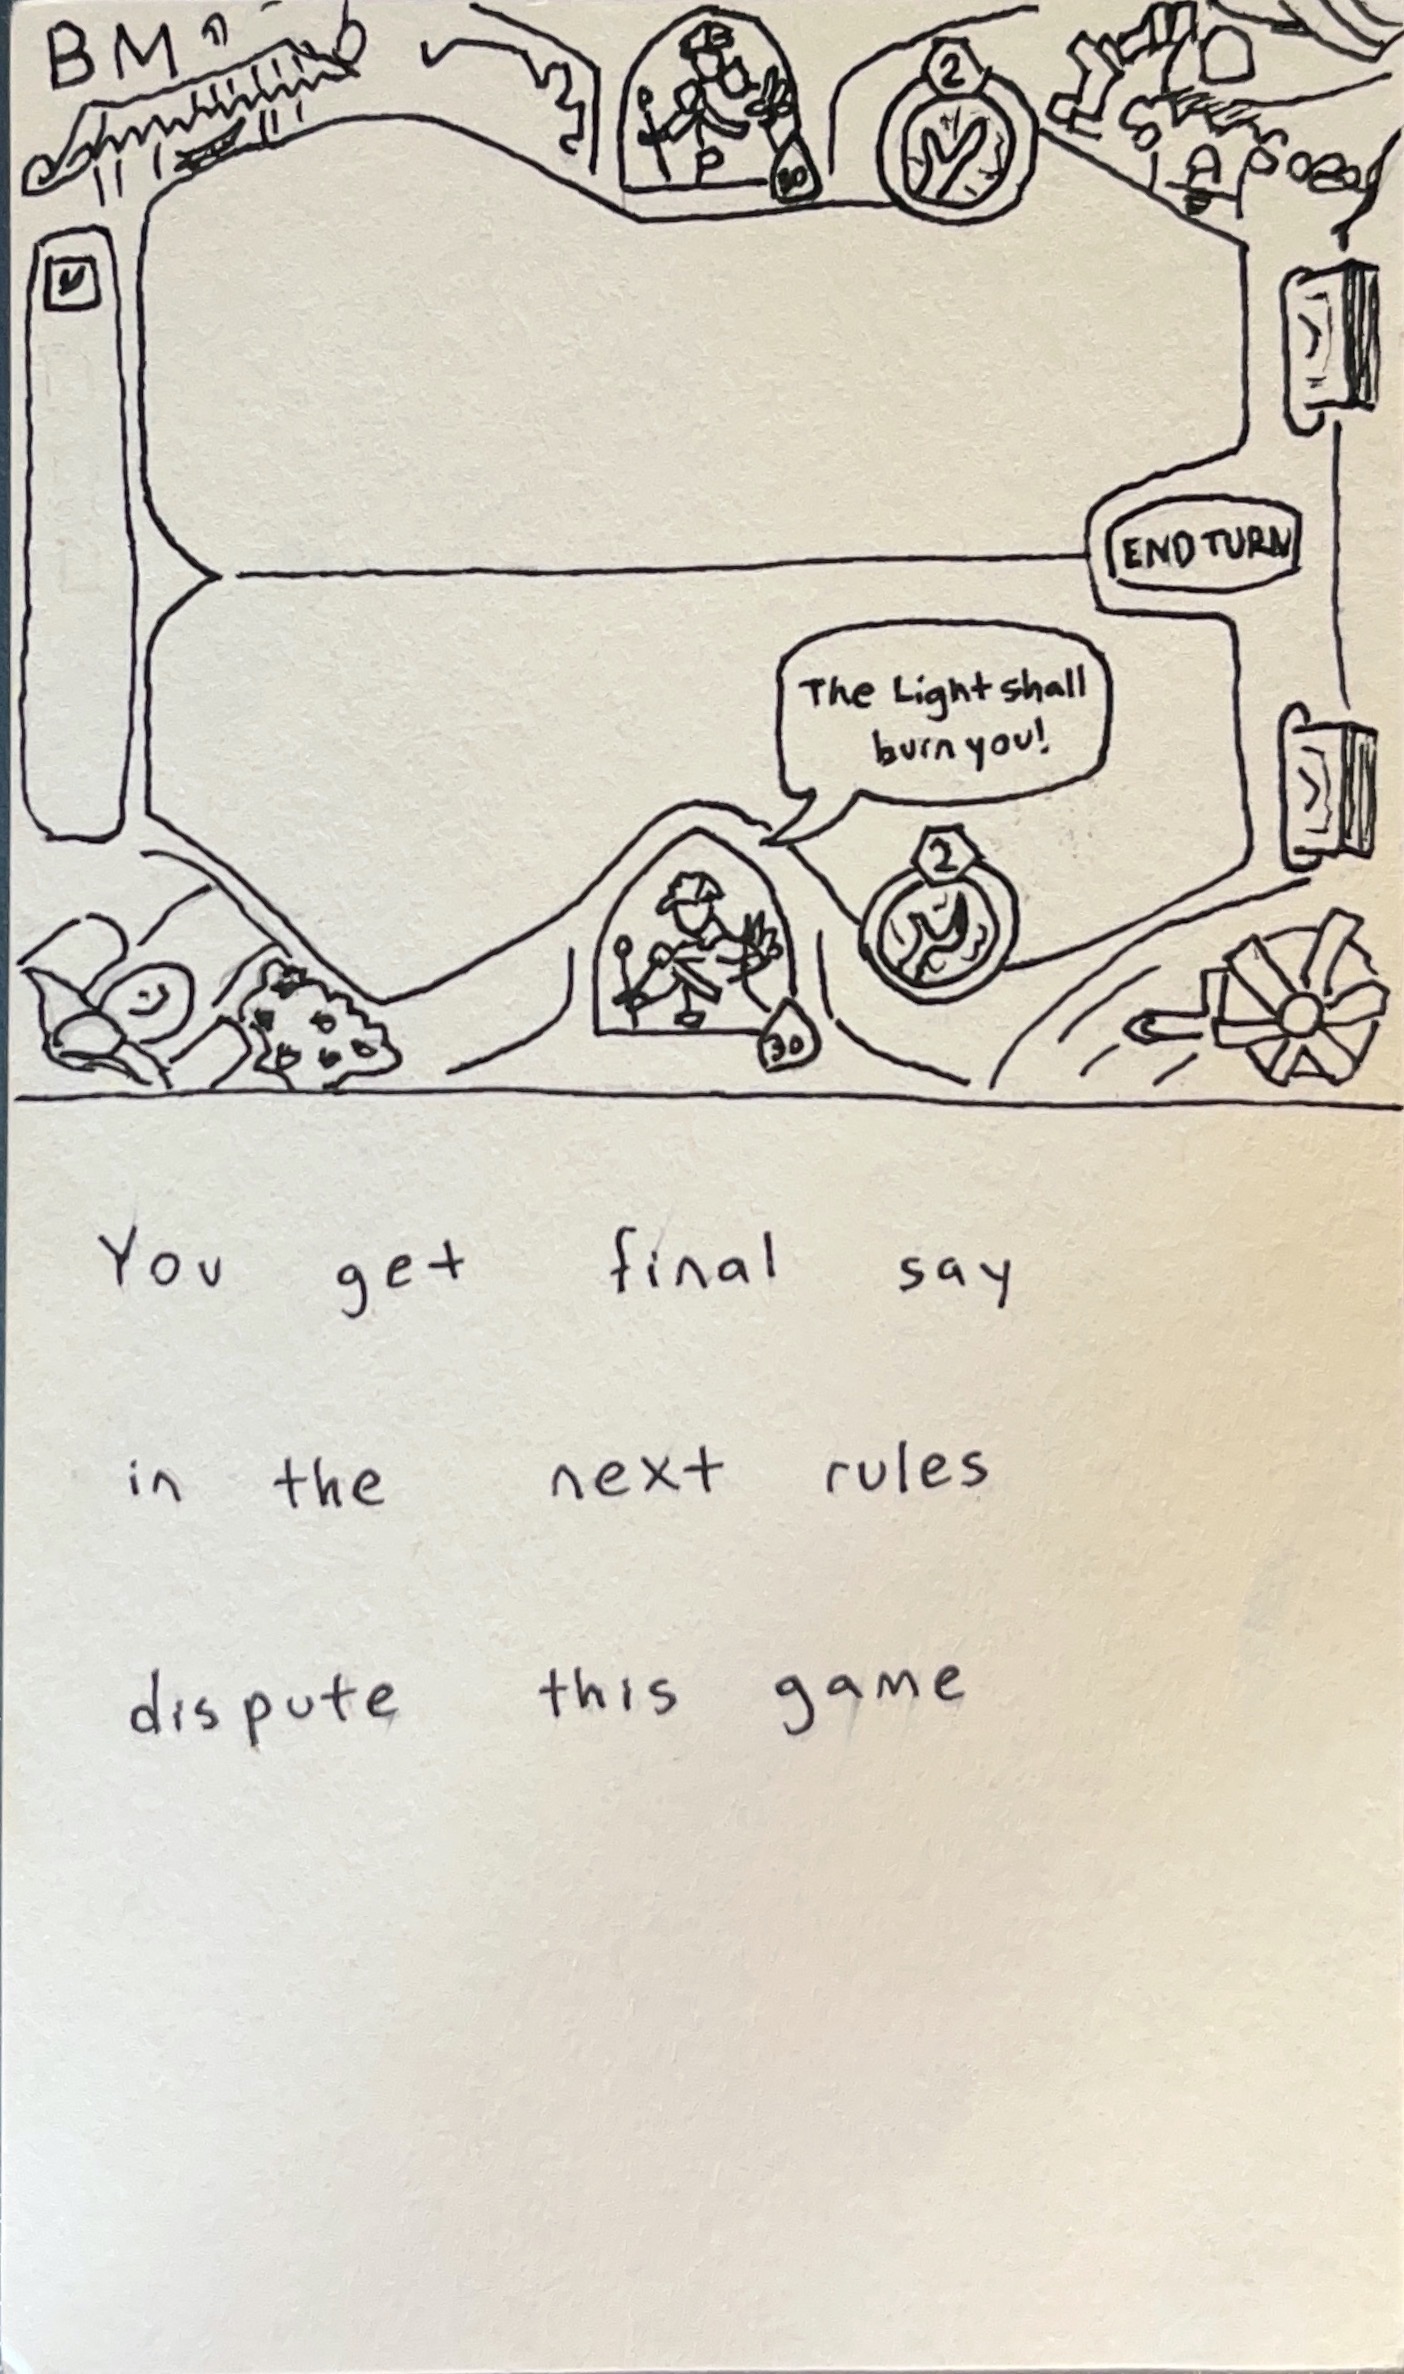 BM
2
30
2
END TURN
The Light shall
burn you!
2
30
You get final say
in the next rules
dispute this game